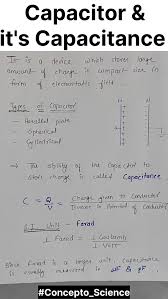 Capacitor &
it's Capacitance
It is a device which stores large
amount of charge in compact size in
form of electrostatic field.
Types of Capacitor
- Parallel plate
- Spherical
- Cylindrical
→ The ability of the Capacitor to
store charge is called Capacitance
C = Q/V = Charge given to Conductor
Increase in Potential of Conductor
S.I Unit - Farad
1 Farad = 1 Coulomb
1 Volt
Since Farad is a larger unit, capacitance
is usually measured in
#Concepto_Science